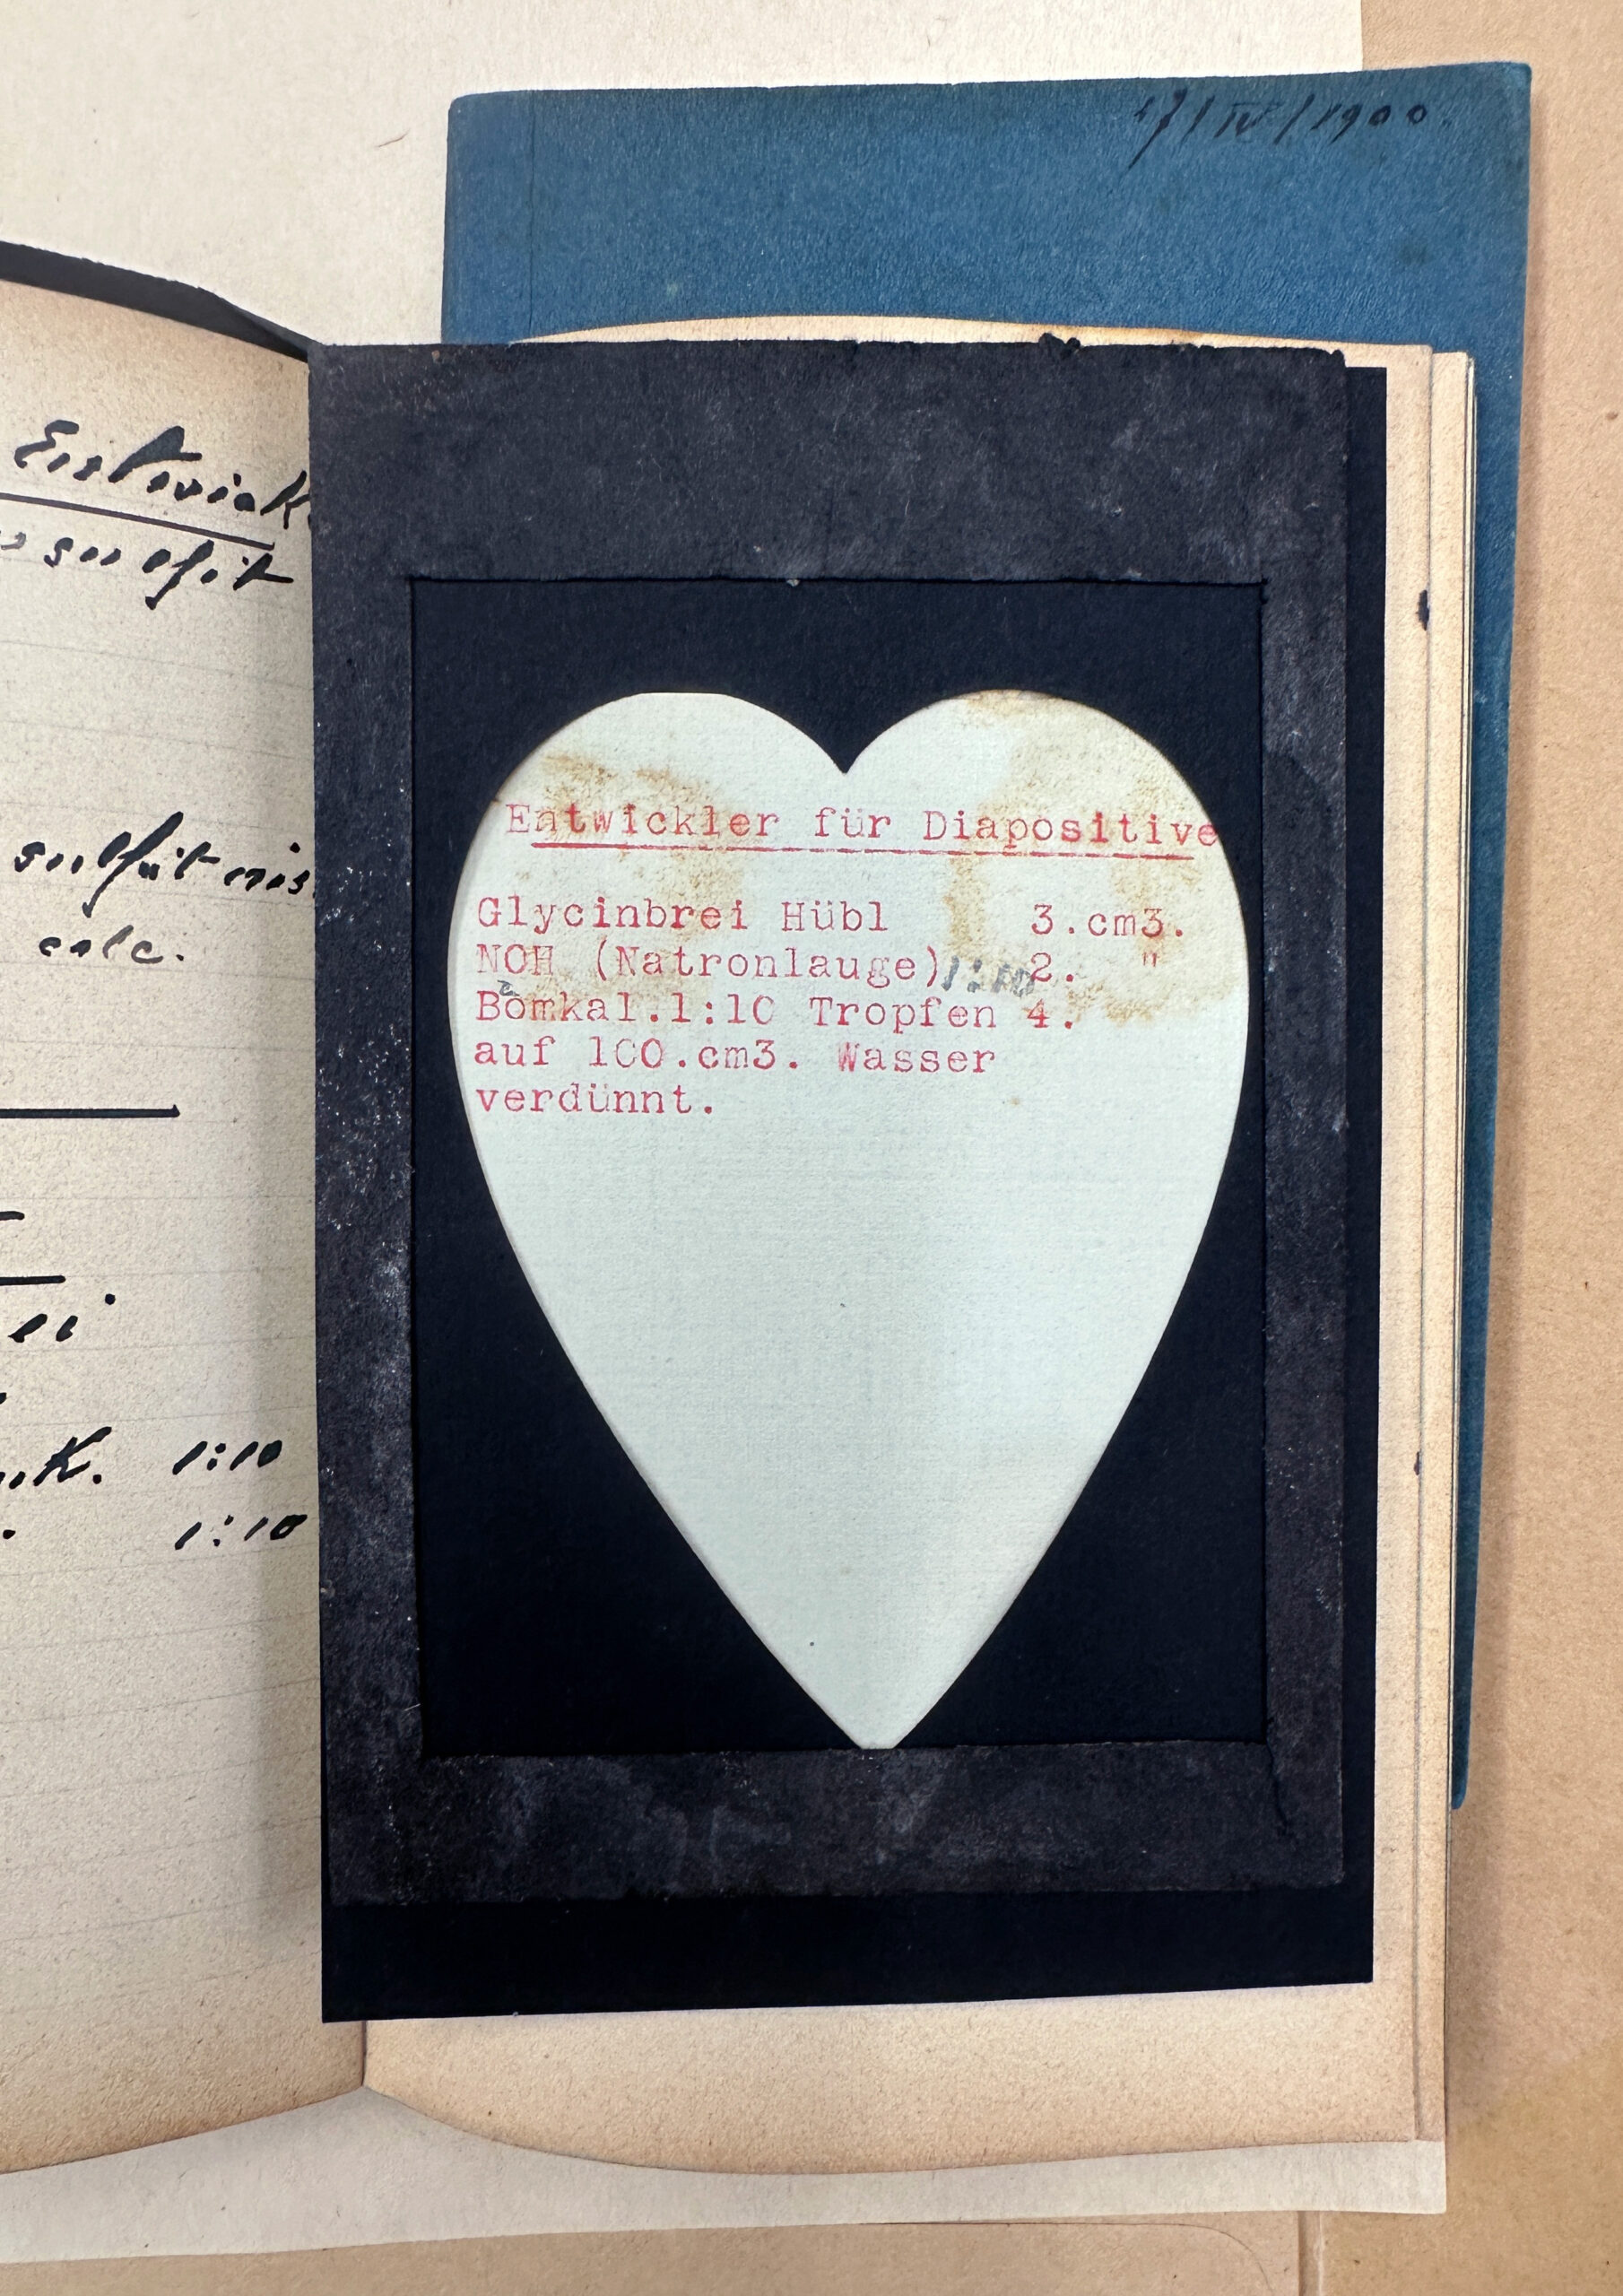 17/IV/1900.
Entwick
sulfit
sulfit
calc.
ei
K. 1:10
1:10
Entwickler für Diapositive
Glycinbrei Hübl 3.cm3.
NOH (Natronlauge) 1:10 2. "
Bromkal.1:10 Tropfen 4.
auf 100.cm3. Wasser
verdünnt.